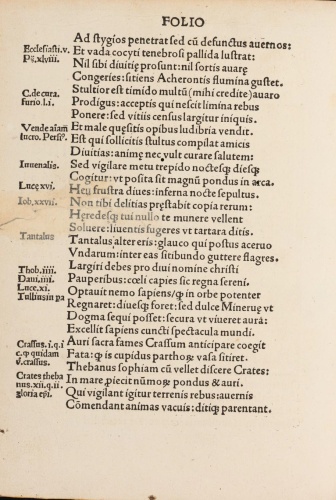 FOLIO
Ad stygios penetrat sed cū defunctus auernos:
Ecclesiasti.v. Et vada cocyti tenebrosi pallida lustrat:
Pṡ.xlviii. Nil sibi diuitię prosunt: nil sortis auarę
Congeries: sitiens Acherontis flumina gustet.
C.de cura. Stultior est timido multū (mihi credite) auaro
furio.l.i. Prodigus: acceptis qui nescit limina rebus
Ponere: sed vitiis census largitur iniquis.
Vende aīam Et male quęsitis opibus ludibria vendit.
lucro. Persiꝰ. Est qui sollicitis stultus compilat amicis
Diuitias: animę nec vult curare salutem:
Iuuenalis. Sed vigilare metu trepido noctesqȝ diesqȝ
Cogitur: vt posita sit magnū pondus in arca.
Lucę xvi. Heu frustra diues: inferna nocte sepultus.
Iob.xxvii. Non tibi delitias pręstabit copia rerum:
Heredesqȝ tui nullo te munere vellent
Soluere: liuentis fugeres vt tartara ditis.
Tantalus Tantalus alter eris: glauco qui postus aceruo
Vndarum: inter eas sitibundo guttere flagres.
Largiri debes pro diui nomine christi
Thob.iiii. Pauperibus: cœli capies sic regna sereni.
Dani.iiii. Optauit nemo sapiens/qȝ in orbe potenter
Luce.xi. Regnaret: diuesqȝ foret: sed dulce Mineruę vt
Tullius in pa Dogma sequi posset: secura vt viueret aura:
Excellit sapiens cuncti spectacula mundi.
Crassus.i.q.i Auri sacra fames Crassum anticipare coegit
quidam Fata: is cupidus parthoꝝ vasa sitiret.
v.crassus. Thebanus sophiam cū vellet discere Crates:
Crates theba In mare proiecit nūmoꝝ pondus & auri.
nus.xii.q.ii Qui vigilant igitur terrenis rebus: auernis
gloria ep̄i. Cōmendant animas vacuis: ditiqȝ parentant.